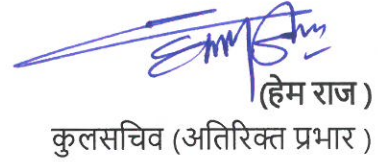 (हेम राज )
कुलसचिव (अतिरिक्त प्रभार )